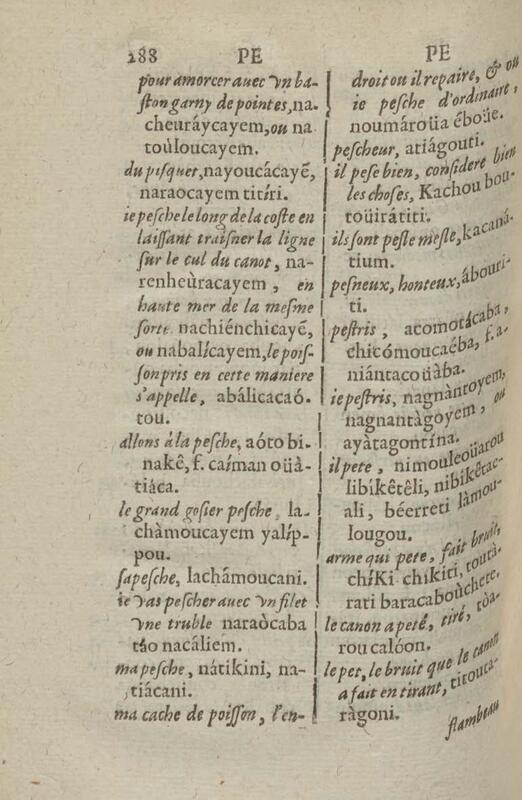 288 PE
pour amorcer auec vn ba-
ſton garny de pointes, na-
cheuráycayem, ou na
toùloucayem.
du piſquet, nayoucácayẽ,
naraocayem titíri.
ie peſche le long de la coſte en
laiſſant traiſner la ligne
ſur le cul du canot, na-
renheùracayem, en
haute mer de la meſme
ſorte nachiénchicayẽ,
ou nabalícayem, le poiſ-
ſon pris en cette maniere
s'appelle, abálicacaó-
tou.
allons á la peſche, aóto bi-
nakê, f. caíman oüà-
tiáca.
le grand goſier peſche, la-
chàmoucayem yalíp-
pou.
ſa peſche, lachâmoucani.
ie vas peſcher auec vn filet
vne truble naraòcaba
táo nacáliem.
ma peſche, nátikini, na-
tiácani.
ma cache de poiſſon, l'en-
PE
droit ou il repaire, & ou
ie peſche d'ordinaire,
noumároüa éboüe.
peſcheur, atiágouti.
il peſe bien, conſidere bien
les choſes, Kachou bou-
toüirátiti.
ils ſont peſle meſle, kacaná-
tium.
peſneux, honteux, ábouri-
ti.
peſtris, acomotácaba,
chicómoucaéba, f. a-
niántacoüàba.
ie peſtris, nagnàntoyem,
nagnantàgoyem, ou
ayàtagontína.
il pete, nimouleoüarou
libíkêtêli, nibíkêtac-
ali, béerreti làmou-
lougou.
arme qui pete, fait bruit,
chíKi chikiti, toutà-
rati baracaboùchere.
le canon a peté, tiré, tòa-
rou calóon.
le pet, le bruit que le canon
a fait en tirant, titouca-
ràgoni.
flambeau